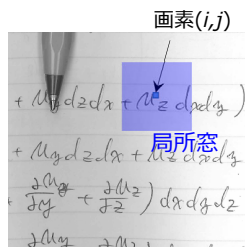 画素(i,j)
+ u_y dzdx + u_z dxdy )
局所窓
+ u_y dzdx + u_z dxdy
∂u_y/∂y + ∂u_z/∂z ) dxdydz